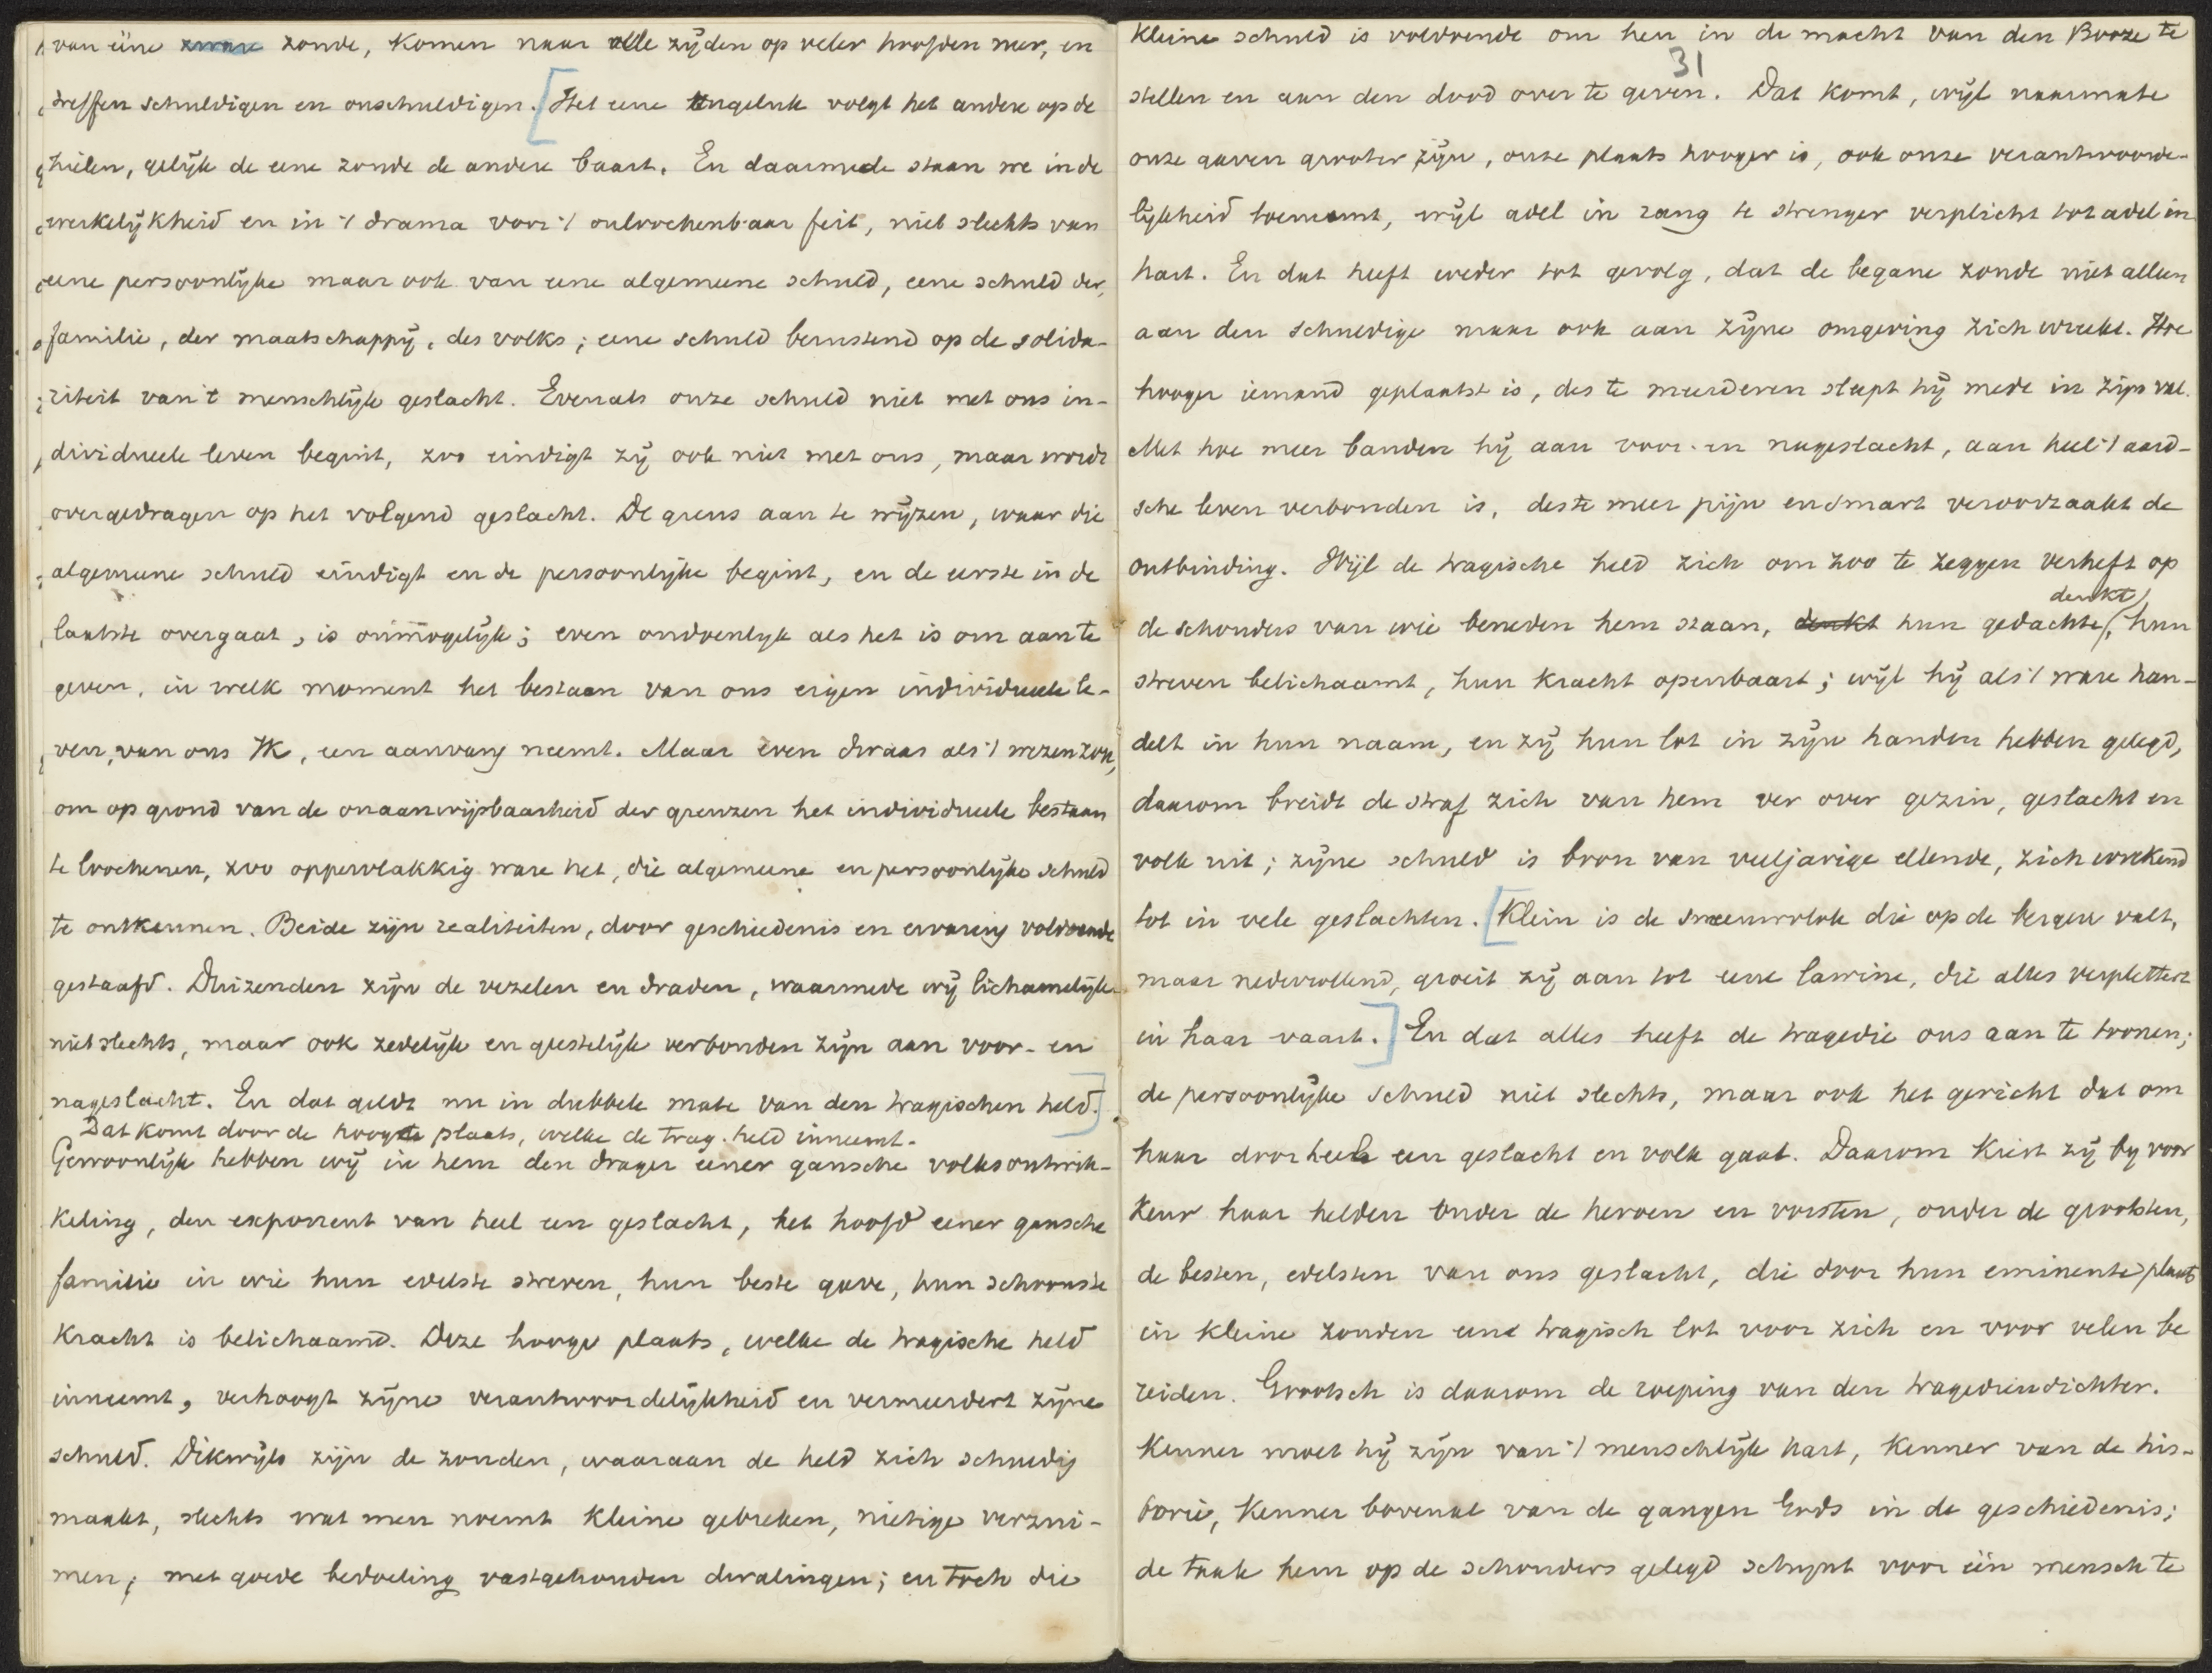 van ééne zware zonde, komen naar alle zijden op veler hoofden neer, en
treffen schuldigen en onschuldigen. [Het eene ongeluk volgt het andere op de
hielen, gelijk de eene zonde de andere baart. En daarmede staan we in de
werkelijkheid en in 't drama voor 't onloochenbaar feit, niet slechts van
eene persoonlijke maar ook van eene algemeene schuld, eene schuld der
familie, der maatschappij, des volks; eene schuld berustend op de solida-
riteit van 't menschlijk geslacht. Evenals onze schuld niet met ons in-
dividueele leven begint, zoo eindigt zij ook niet met ons, maar wordt
overgedragen op het volgend geslacht. De grens aan te wijzen, waar die
algemeene schuld eindigt en de persoonlijke begint, en de eerste in de
laatste overgaat, is onmogelijk; even ondoenlijk als het is om aan te
geven, in welk moment het bestaan van ons eigen individueele le-
ven, van ons IK, een aanvang neemt. Maar even dwaas als 't wezen zou,
om op grond van de onaanwijsbaarheid der grenzen het individueele bestaan
te loochenen, zoo oppervlakkig ware het, die algemeene en persoonlijke schuld
te ontkennen. Beide zijn realiteiten, door geschiedenis en ervaring voldoende
gestaafd. Duizenden zijn de vezelen en draden, waarmede wij lichamelijk
niet slechts, maar ook zedelijk en geestelijk verbonden zijn aan voor- en
nageslacht. En dat geldt nu in dubbele mate van den tragischen held.]
Dat komt door de hooge plaats, welke de trag. held inneemt.
Gewoonlijk hebben wij in hem den drager eener gansche volksontwik-
keling, den exponent van heel een geslacht, het hoofd eener gansche
familie in wie hun edelste streven, hun beste gave, hun schoonste
kracht is belichaamd. Deze hooge plaats, welke de tragische held
inneemt, verhoogt zijne verantwoordelijkheid en vermeerdert zijne
schuld. Dikwijls zijn de zonden, waaraan de held zich schuldig
maakt, slechts wat men noemt kleine gebreken, nietige verzui-
men; met goede bedoeling vastgehouden dwalingen; en toch die
31
kleine schuld is voldoende om hen in de macht van den Booze te
stellen en aan den dood over te geven. Dat komt, wijl naarmate
onze gaven grooter zijn, onze plaats hooger is, ook onze verantwoorde-
lijkheid toeneemt, wijl adel in rang te strenger verplicht tot adel in
hart. En dat heeft weder tot gevolg, dat de begane zonde niet alleen
aan den schuldige maar ook aan zijne omgeving zich wreekt. Hoe
hooger iemand geplaatst is, des te meerderen sleept hij mede in zijn val.
Met hoe meer banden hij aan voor- en nageslacht, aan heel 't aard-
sche leven verbonden is, des te meer pijn en smart veroorzaakt de
ontbinding. Wijl de tragische held zich om zoo te zeggen verheft op
de schouders van wie beneden hem staan, denkt hun gedachte denkt, hun
streven belichaamt, hun kracht openbaart; wijl hij als 't ware han-
delt in hun naam, en zij hun lot in zijn handen hebben gelegd,
daarom breidt de straf zich van hem ver over gezin, geslacht en
volk uit; zijne schuld is bron van veeljarige ellende, zich wrekend
tot in vele geslachten. [Klein is de sneeuwvlok die op de bergen valt,
maar nederrollend, groeit zij aan tot eene lawine, die alles verplettert
in haar vaart.] En dat alles heeft de tragedie ons aan te toonen;
de persoonlijke schuld niet slechts, maar ook het gericht dat om
haar door heel een geslacht en volk gaat. Daarom kiest zij bij voor
keur haar helden onder de heroen en vorsten, onder de grootsten,
de besten, edelsten van ons geslacht, die door hun eminente plaats
in kleine zonden een tragisch lot voor zich en voor velen be
reiden. Grootsch is daarom de roeping van den tragediendichter.
Kenner moet hij zijn van 't menschlijk hart, kenner van de his-
torie, kenner bovenal van de gangen Gods in de geschiedenis;
de taak hem op de schouders gelegd schijnt voor één mensch te